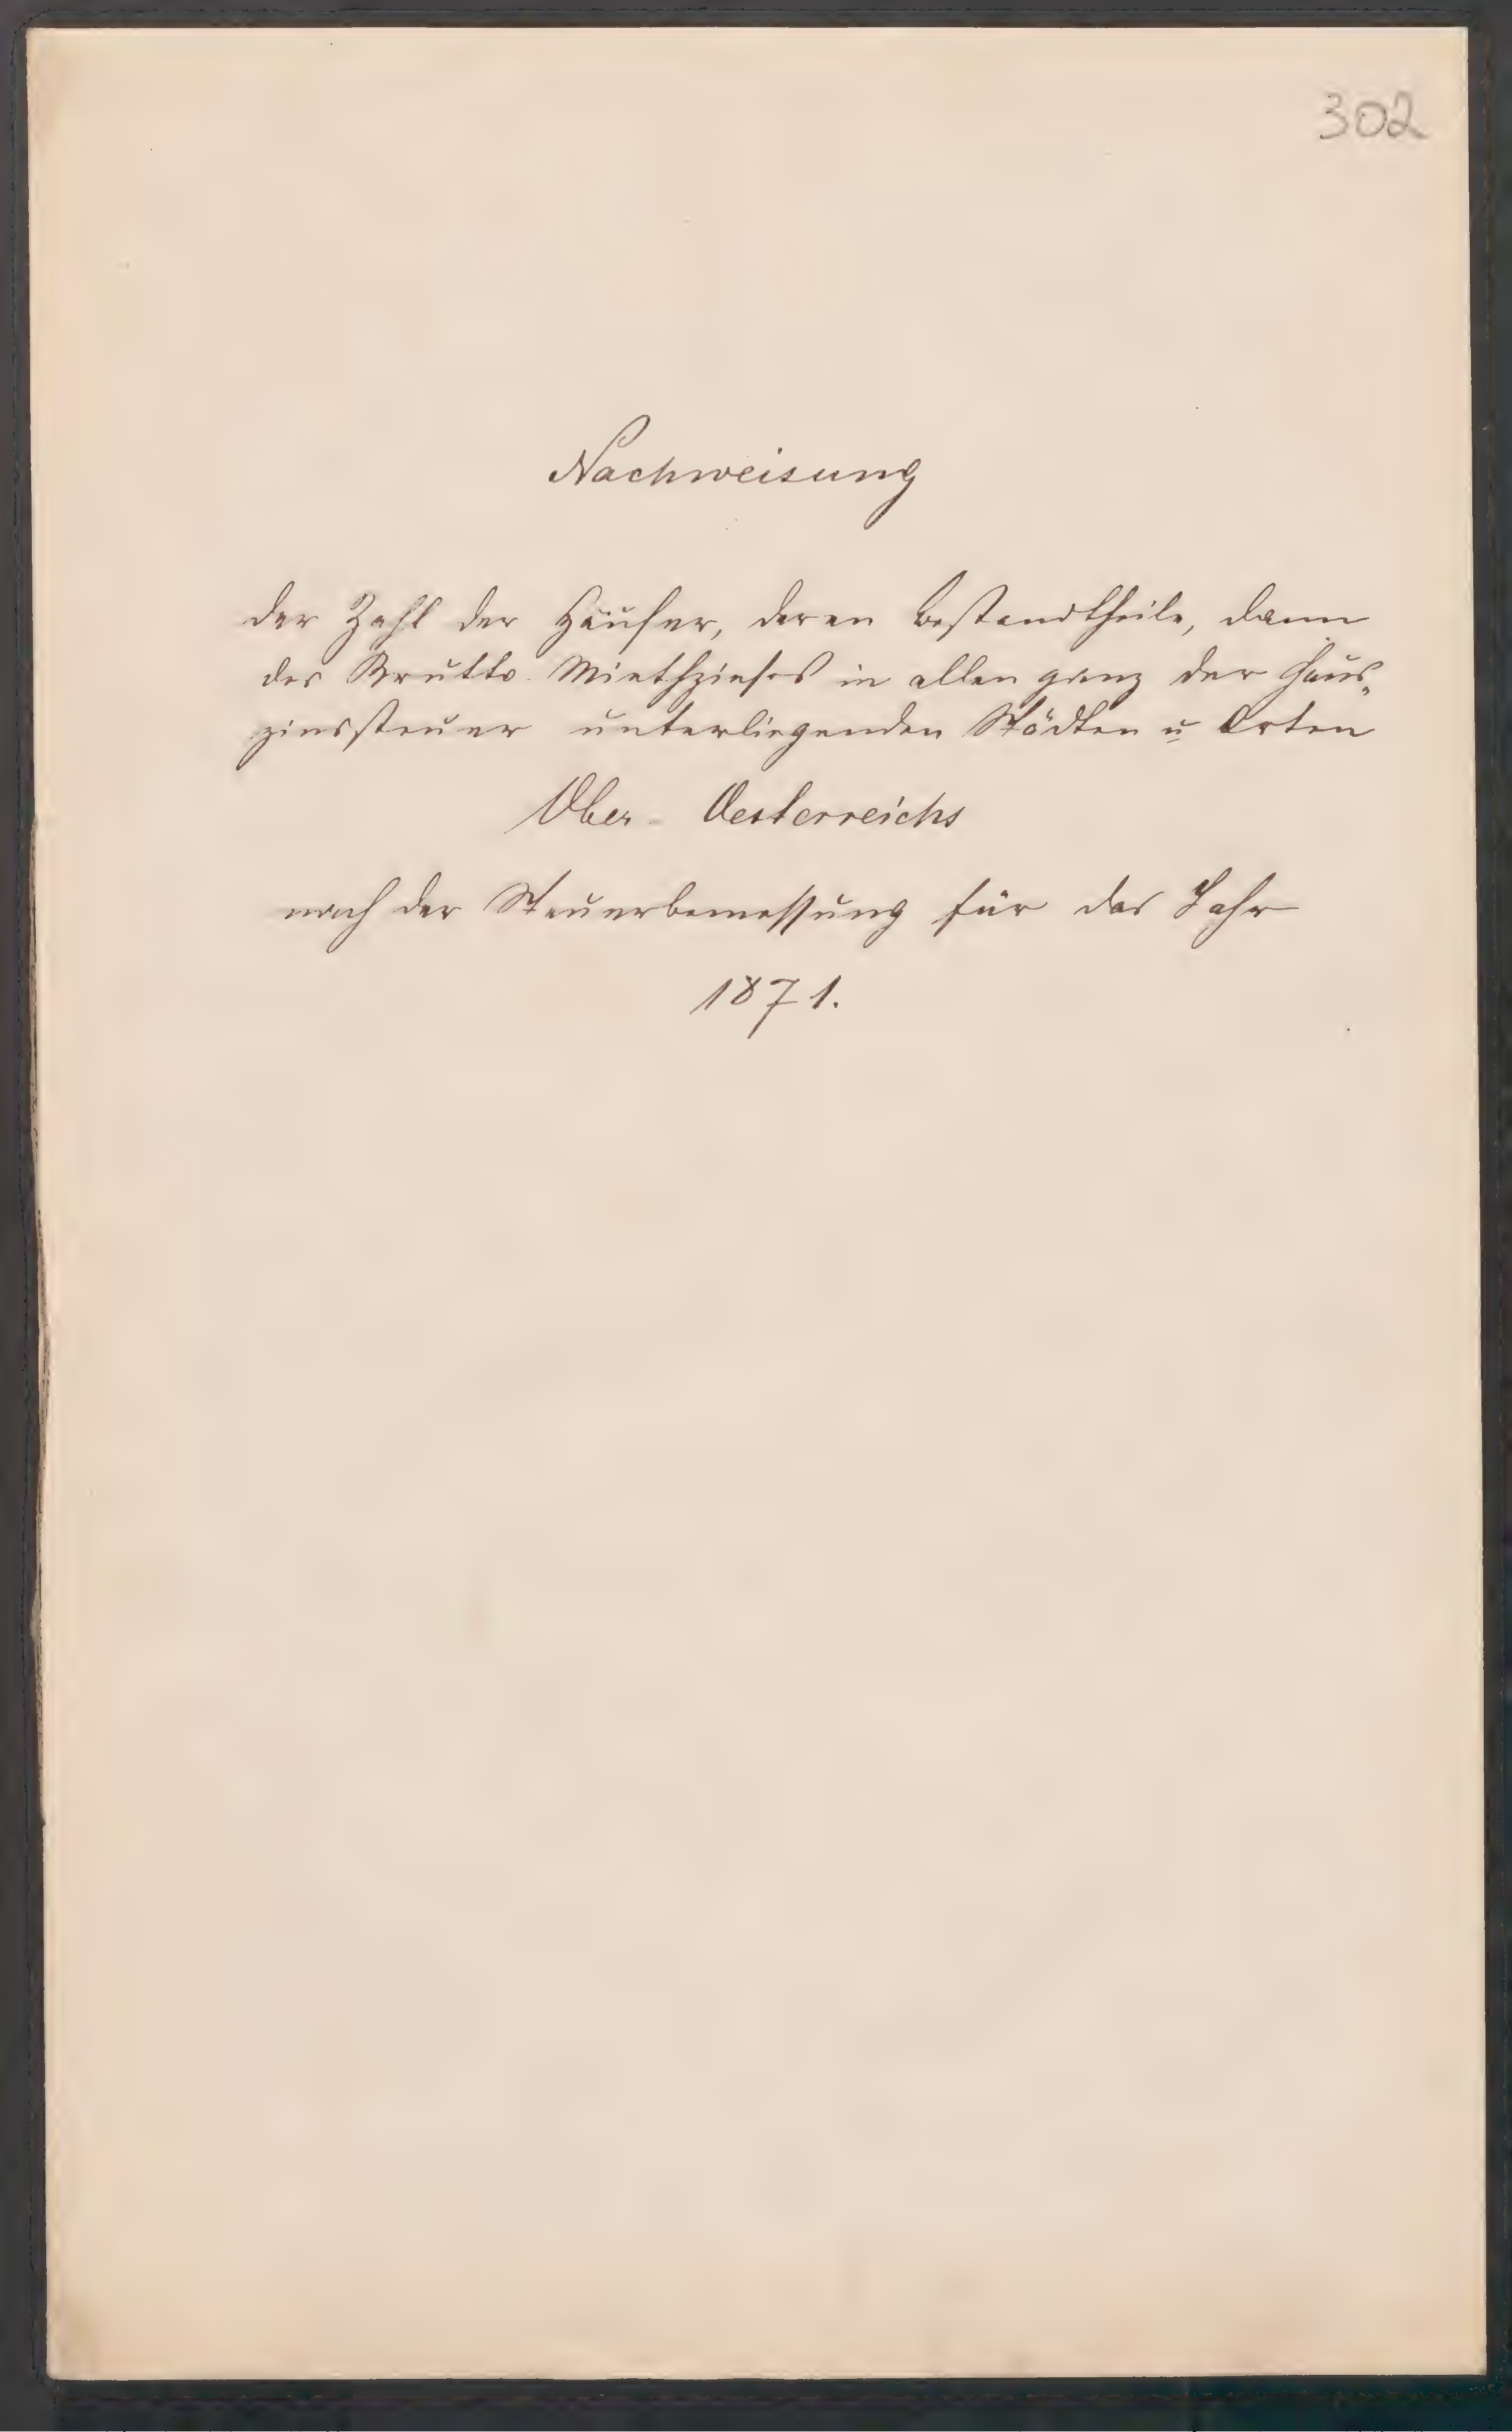 302
Nachweisung
der Zahl der Häuser, deren Bestandtheile, dann
des Brutto-Miethzinses in allen ganz der Haus-
zinssteuer unterliegenden Städten u Orten
Ober-Oesterreichs
nach der Steuerbemessung für das Jahr
1871.